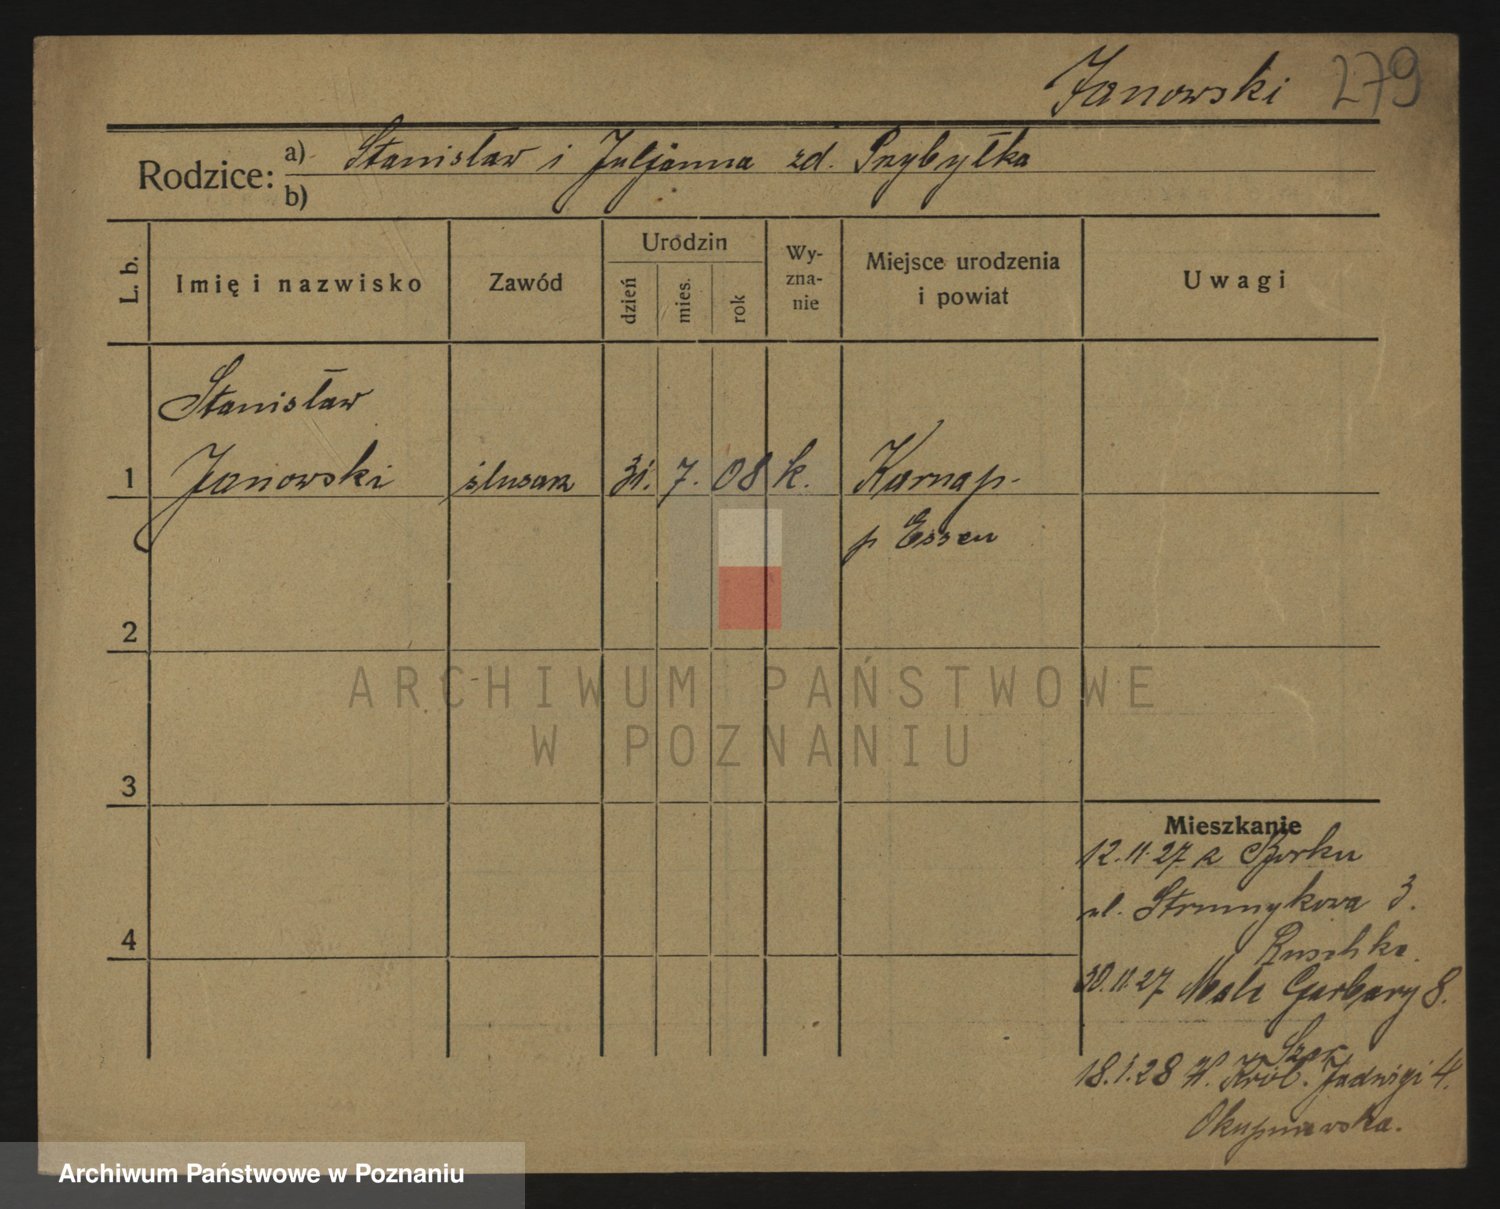 Janowski 279
Rodzice: a) Stanisław i Juljanna zd. Przybyłka
b)
L. b. Imię i nazwisko Zawód Urodzin dzień mies. rok Wy-zna-nie Miejsce urodzenia i powiat Uwagi
Stanisław
1 Janowski ślusarz 31. 7. 08 k. Karnap.
p Essen
2
ARCHIWUM PAŃSTWOWE
W POZNANIU
3
Mieszkanie
12.11.27 z Borku
ul. Strumykowa 3.
4
30.11.27 Małe Garbary 8.
18.1.28 W. Król. Jadwigi 4.
Archiwum Państwowe w Poznaniu